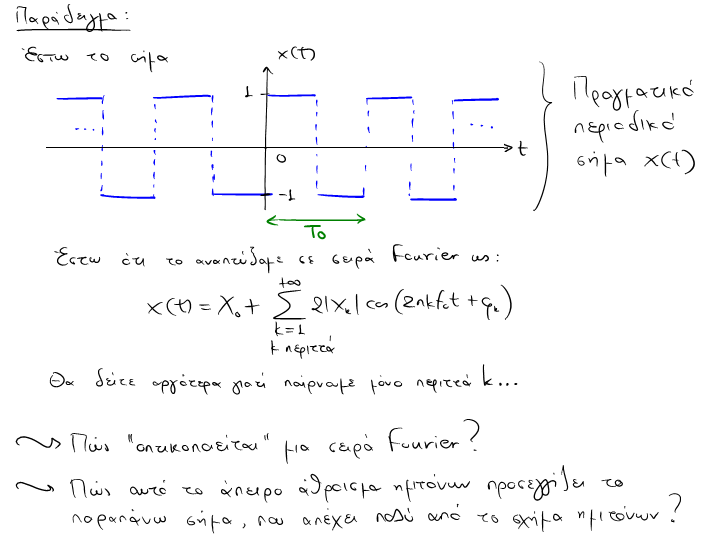 Παράδειγμα:
Έστω το σήμα
x(t)
1
...
...
0
t
-1
T₀
Πραγματικό
περιοδικό
σήμα x(t)
Έστω ότι το αναπτύξαμε σε σειρά Fourier ως:
x(t) = X₀ + ∑_{k=1}^{+∞} 2|X_k| cos(2πkf₀t + φ_k)
k περιττά
Θα δείτε αργότερα γιατί παίρναμε μόνο περιττά k...
Πώς "οπτικοποιείται" μια σειρά Fourier?
Πώς αυτό το άπειρο άθροισμα ημιτόνων προσεγγίζει το
παραπάνω σήμα, που απέχει πολύ από το σχήμα ημιτόνων?